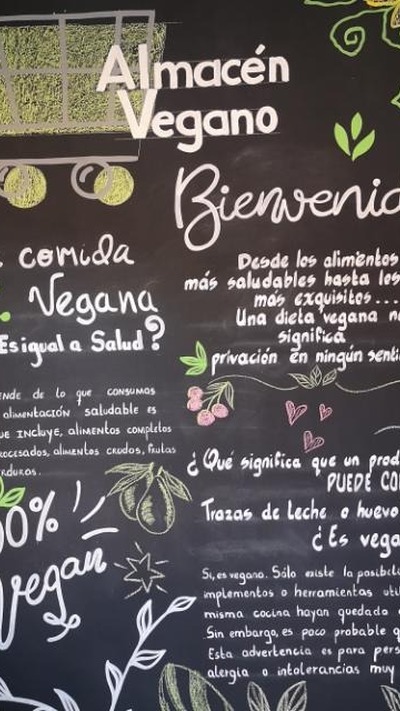 Almacén
Vegano
Bienvenid
comida
Vegana
Es igual a Salud?
ENDE de lo que consumas
alimentación saludable es
UE INCLUYE, alimentos completos
ocesados, alimentos crudos, frutas
rduras.
00%
Vegan
Desde los alimentos
más saludables hasta los
más exquisitos...
Una dieta vegana n
significa
privación en ningún senti
¿Qué significa que un prod
PUEDE CO
Trazas de Leche o huevo
¿Es vega
Si, es vegano. Sólo existe la posibili
implementos o herramientas uti
misma cocina hayan quedado
Sin embargo, es poco probable q
Esta advertencia es para pers
alergia o intolerancias muy